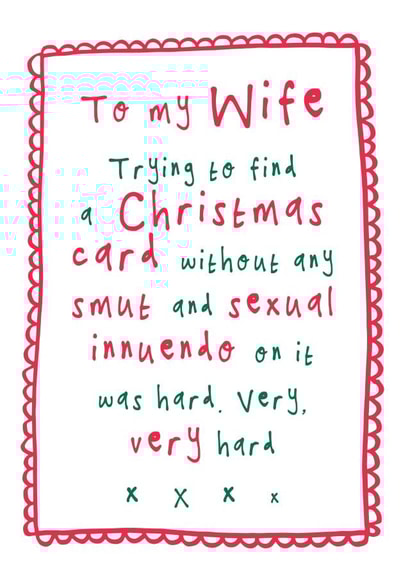 To my Wife
Trying to find
a Christmas
card without any
smut and sexual
innuendo on it
was hard. Very,
very hard
x x x x